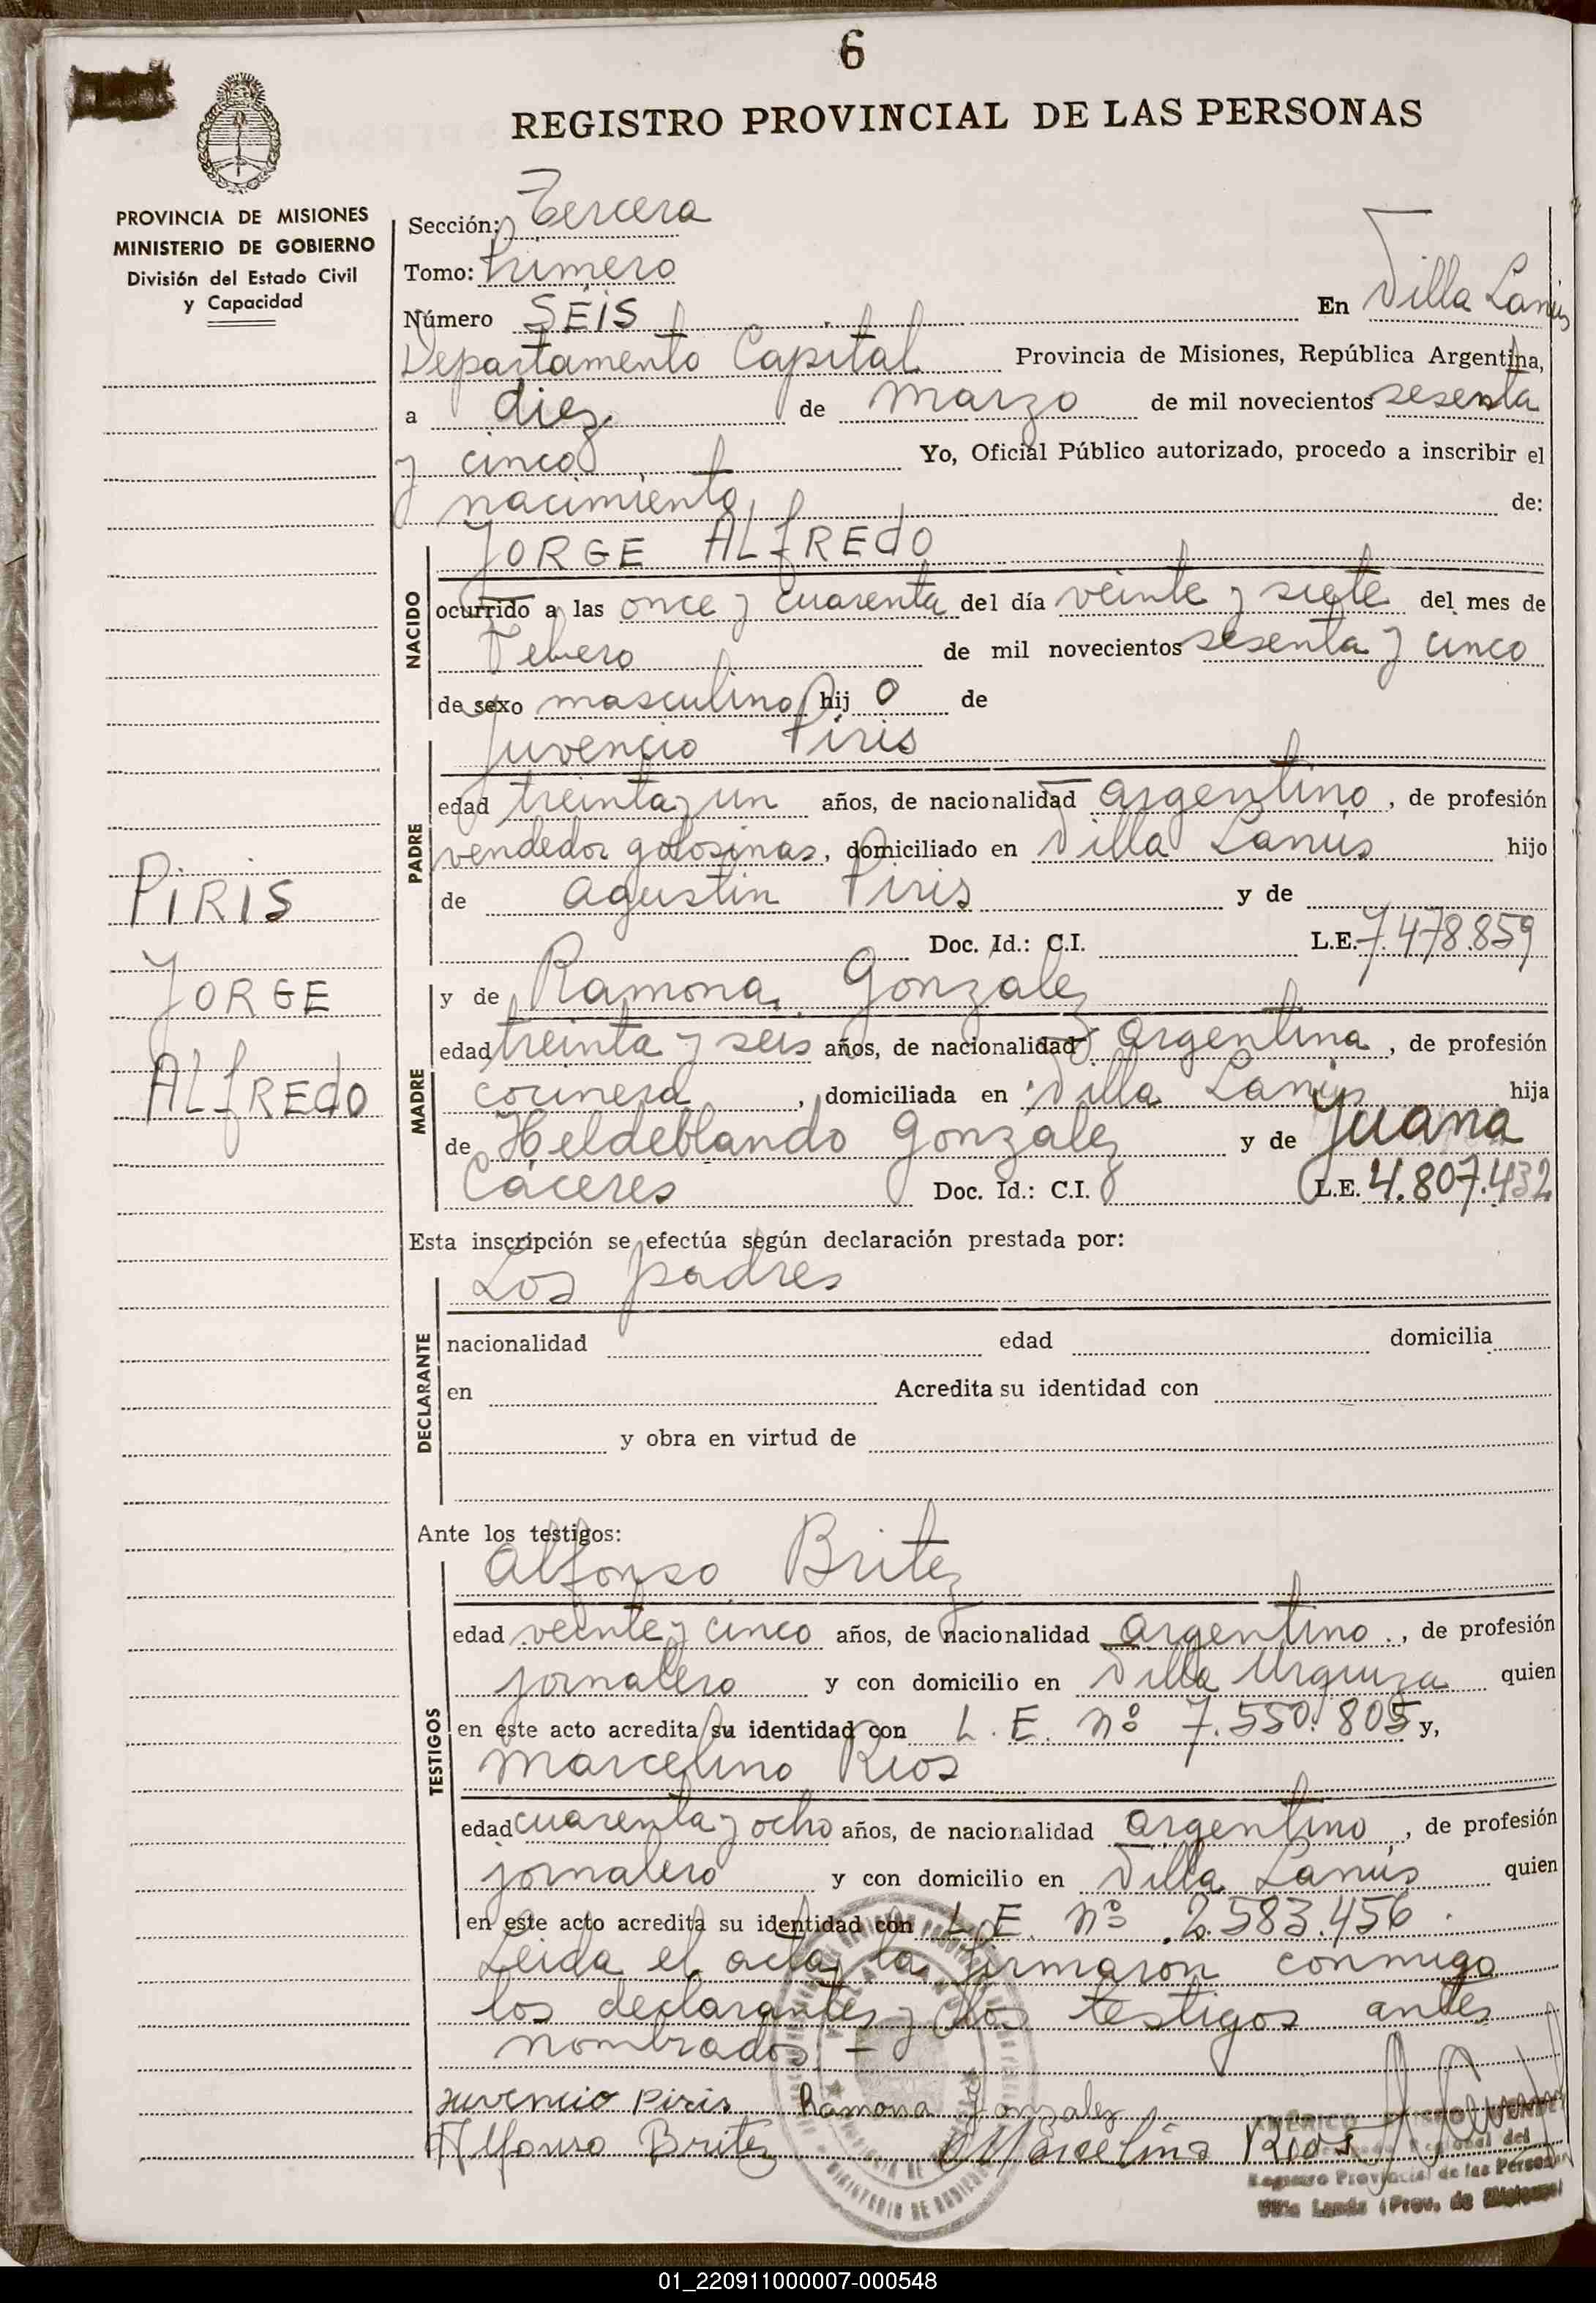 6
REGISTRO PROVINCIAL DE LAS PERSONAS
PROVINCIA DE MISIONES
MINISTERIO DE GOBIERNO
División del Estado Civil
y Capacidad
Sección: Tercera
Tomo: Primero
Número SEIS En Villa Lanús
Departamento Capital Provincia de Misiones, República Argentina,
a diez de marzo de mil novecientos sesenta
y cinco Yo, Oficial Público autorizado, procedo a inscribir el
nacimiento de:
NACIDO
JORGE ALFREDO
ocurrido a las once y cuarenta del día veinte y siete del mes de
Febrero de mil novecientos sesenta y cinco
de sexo masculino hijo de
PADRE
Juvencio Piris
edad treinta y un años, de nacionalidad argentino, de profesión
vendedor golosinas, domiciliado en Villa Lanús hijo
de Agustin Piris y de
Doc. Id.: C.I. L.E. 7.478.859
PIRIS
JORGE
ALFREDO
MADRE
y de Ramona Gonzalez
edad treinta y seis años, de nacionalidad argentina, de profesión
cocinera, domiciliada en Villa Lanús hija
de Heldeblando Gonzalez y de Juana
Cáceres Doc. Id.: C.I. L.E. 4.807.432
Esta inscripción se efectúa según declaración prestada por:
DECLARANTE
Los padres
nacionalidad edad domicilia
en Acredita su identidad con
y obra en virtud de
Ante los testigos:
TESTIGOS
Alfonso Britez
edad veinte y cinco años, de nacionalidad argentino, de profesión
jornalero y con domicilio en Villa Urquiza quien
en este acto acredita su identidad con L.E. nº 7.550.805 y,
Marcelino Rios
edad cuarenta y ocho años, de nacionalidad argentino, de profesión
jornalero y con domicilio en Villa Lanús quien
en este acto acredita su identidad con L.E. nº 2.583.456.
Leida el acta, la firmaron conmigo
los declarantes y los testigos antes
nombrados. -
Juvencio Piris Ramona Gonzalez
Alfonso Britez Marcelino Rios
AMÉRICO
Registro Provincial de las Personas
Villa Lanús (Prov. de Misiones)
01_220911000007-000548